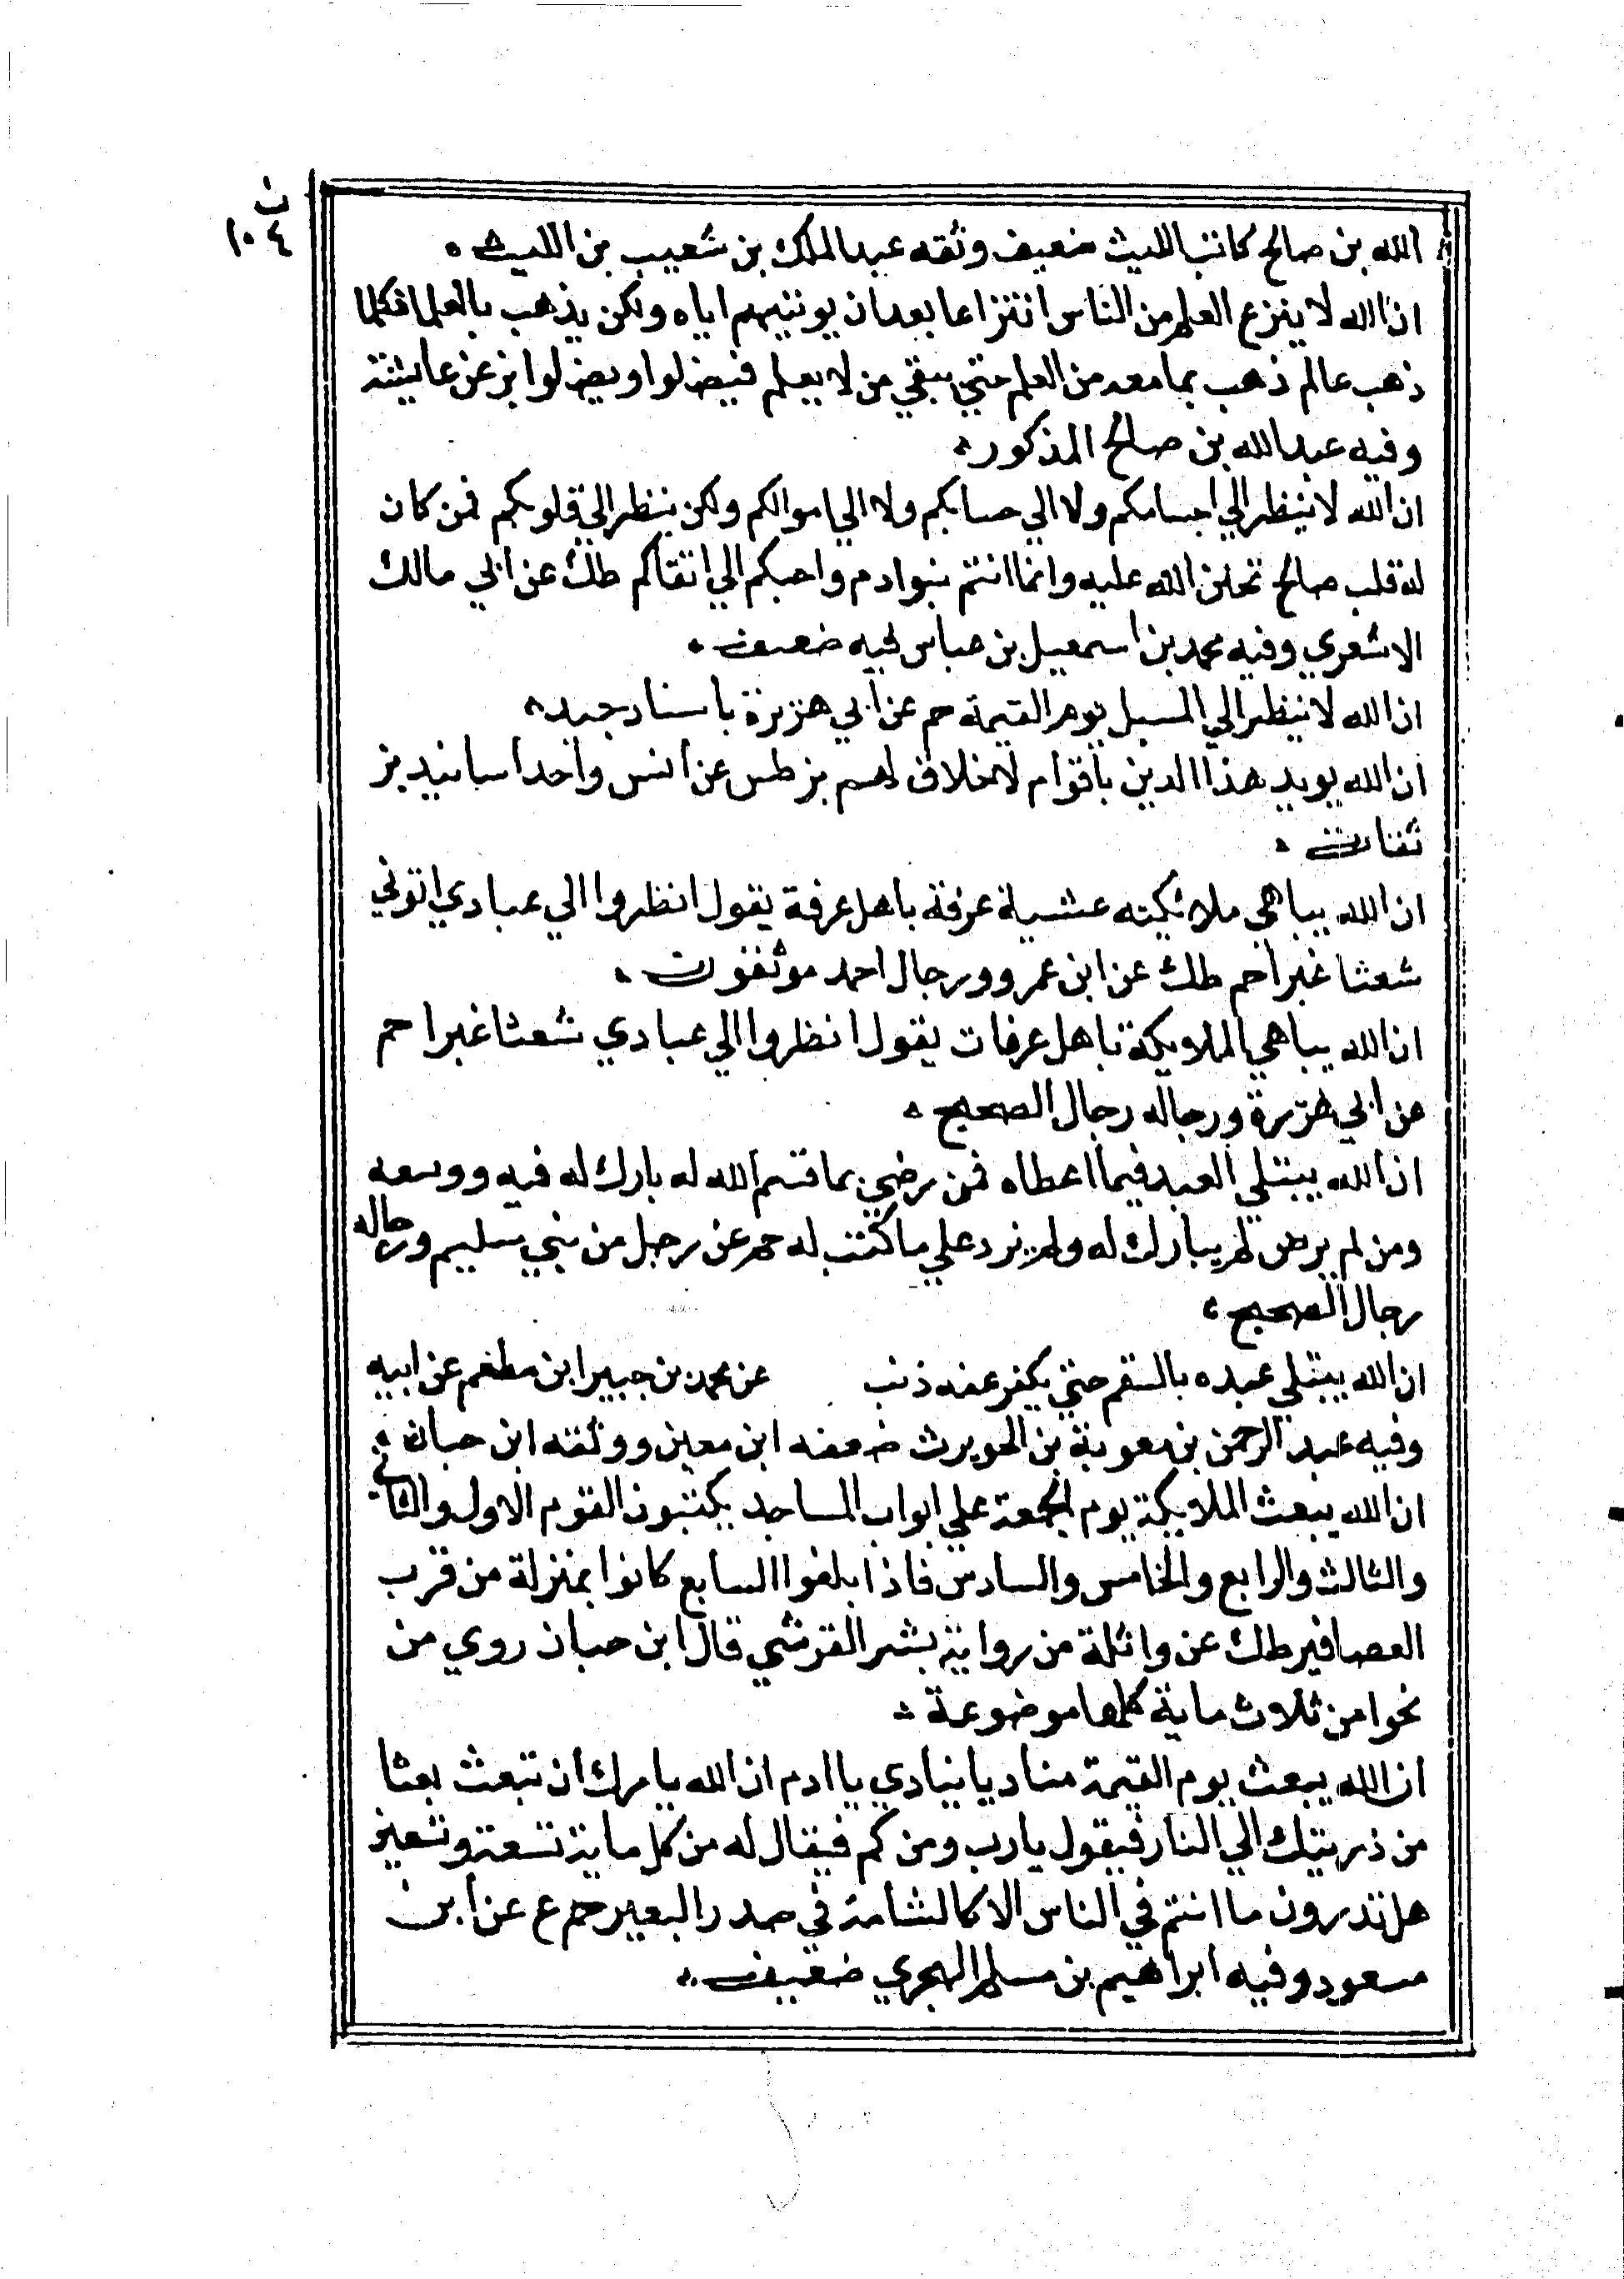 ن
١٠٤
الله بن صالح كاتب الليث ضعيف وثقه عبد الملك بن شعيب بن الليث
ان الله لا ينزع العلم من الناس انتزاعا بعد ان يوتيهم اياه ولكن يذهب بالعلما فكلما
ذهب عالم ذهب بما معه من العلم حتي يبقي من لا يعلم فيضلوا ويضلوا بز عن عايشة
وفيه عبد الله بن صالح المذكور
ان الله لا ينظر الي اجسامكم ولا الي حسابكم ولا الي اموالكم ولكن ينظر الي قلوبكم فمن كان
له قلب صالح تحنن الله عليه وانما انتم بنوا دم واحبكم الي اتقاكم طك عن ابي مالك
الاشعري وفيه محمد بن اسمعيل بن عباس فيه ضعيف
ان الله لا ينظر الي المسبل يوم القيمة حم عن ابي هريرة باسناد جيد
ان الله يويد هذا الدين باقوام لا خلاق لهم بز طس عن انس واحد اسانيد بز
ثقات
ان الله يباهي ملائكته عشية عرفة باهل عرفة يقول انظروا الي عبادي اتوني
شعثا غبرا حم طك عن ابن عمرو ورجال احمد موثقون
ان الله يباهي الملايكة باهل عرفات يقول انظروا الي عبادي شعثا غبرا حم
عن ابي هريرة ورجاله رجال الصحيح
ان الله يبتلي العبد فيما اعطاه فمن رضي بما قسم الله له بارك له فيه ووسعه
ومن لم يرض لم يبارك له ولم يزد علي ما كتب له حم عن رجل من بني سليم ورجاله
رجال الصحيح
ان الله يبتلي عبده بالسقم حتي يكفر عنه ذنب عن محمد بن جبير ابن مطعم عن ابيه
وفيه عبد الرحمن بن معوية بن الحويرث ضعفه ابن معين ووثقه ابن حبان
ان الله يبعث الملايكة يوم الجمعة علي ابواب المساجد يكتبون القوم الاول والثاني
والثالث والرابع والخامس والسادس فاذا بلغوا السابع كانوا بمنزلة من قرب
العصافير طك عن واثلة من رواية بشر القرشي قال ابن حبان روي من
نحوا من ثلاث ماية كلها موضوعة
ان الله يبعث يوم القيمة مناديا ينادي يا ادم ان الله يامرك ان تبعث بعثا
من ذريتك الي النار فيقول يارب ومن كم فيقال له من كل ماية تسعة وتسعين
هل تدرون ما انتم في الناس الا كالشامة في صدر البعير حم ع عن ابن
مسعود وفيه ابراهيم بن مسلم الهجري ضعيف